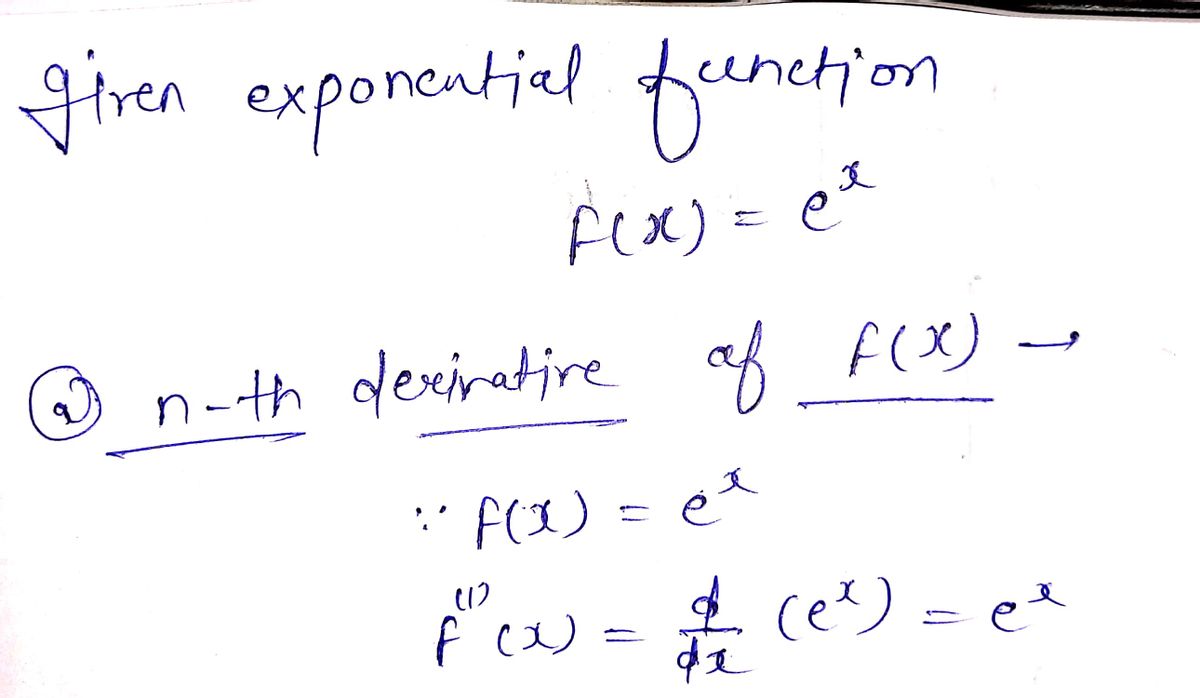 given exponential function
f(x) = e^x
(a) n-th derivative of f(x) →
∵ f(x) = e^x
f^(1)(x) = d/dx (e^x) = e^x